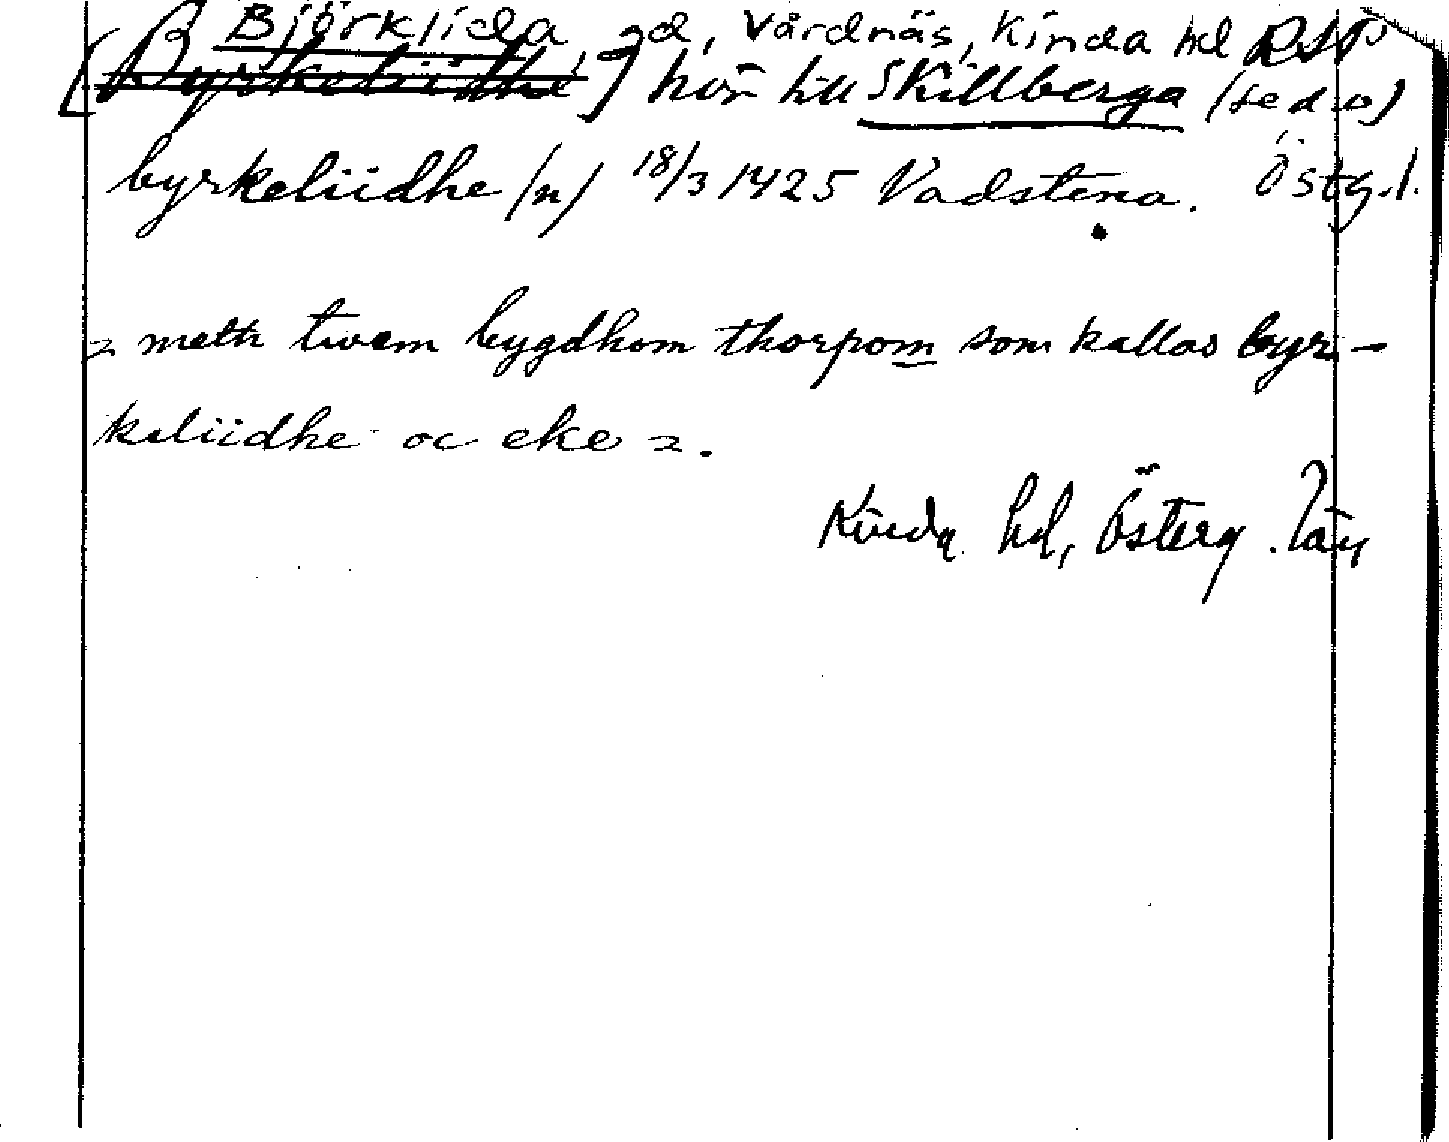 Björklida, gd, Vårdnäs, Kinda hd RAP
[Byrkeliidhe] hör till Skillberga (se d o)
byrkeliidhe (n) 18/3 1425 Vadstena. Östg.l.
= meth twem bygdhom thorpom som kallas byr-
keliidhe oc eke =.
Kinda hd, Österg. län